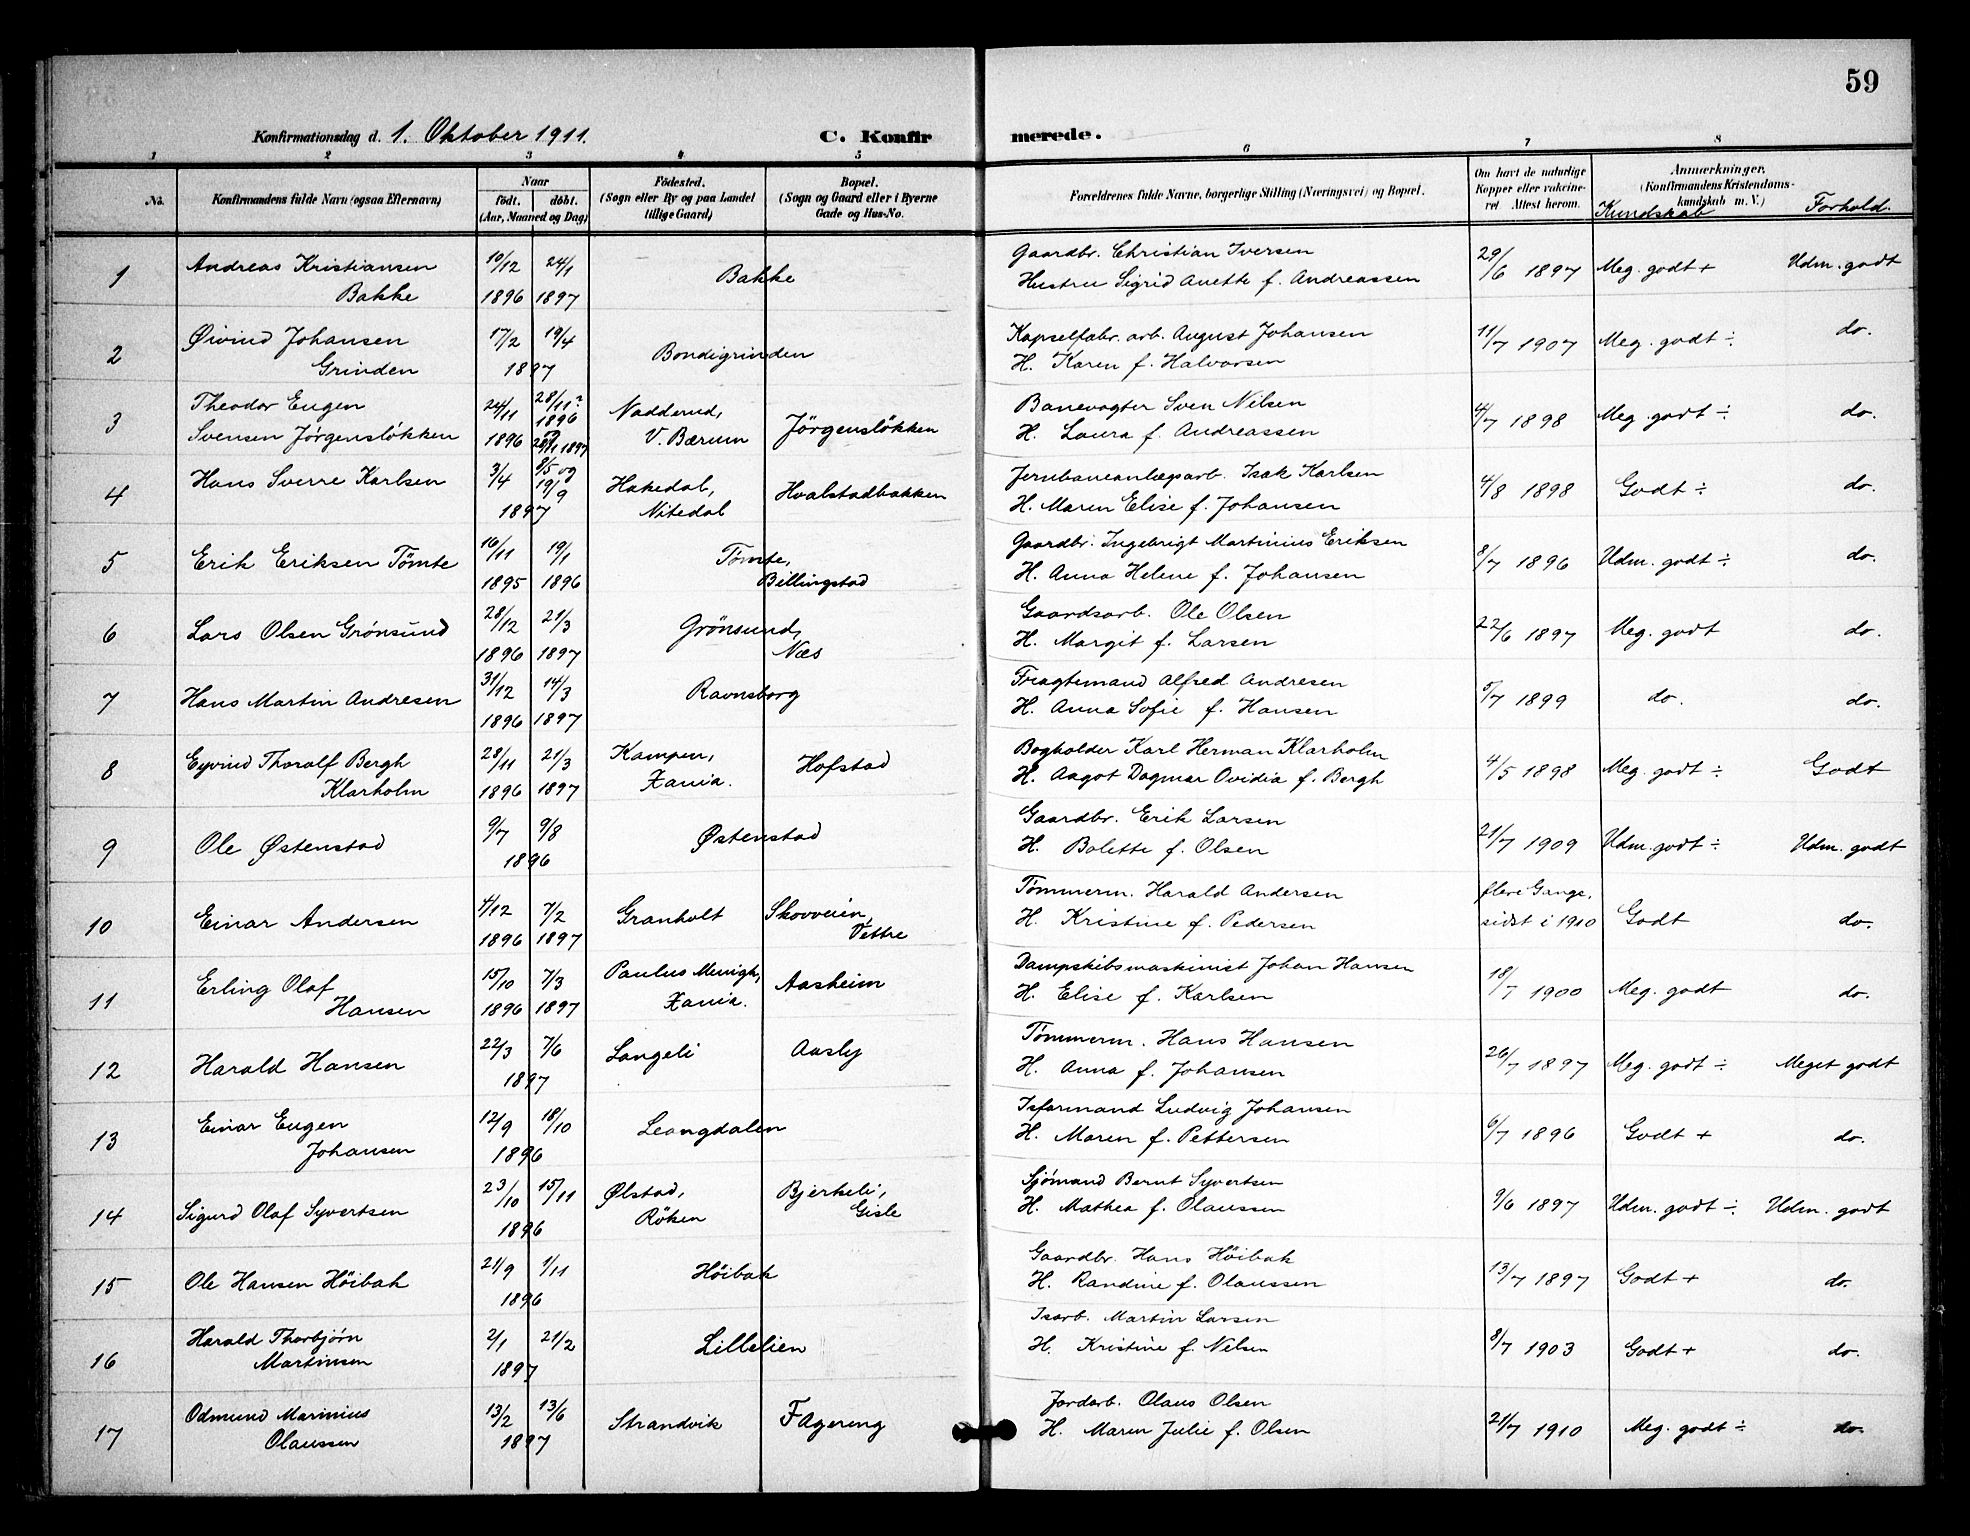 59
Konfirmationsdag d. 1. Oktober 1911. C. Konfir merede.
1 2 3 4 5 6 7 8
No. Konfirmandens fulde Navn (ogsaa Efternavn) Naar født. døbt. (Aar, Maaned og Dag) Fødested. (Sogn eller By og paa Landet tillige Gaard) Bopæl. (Sogn og Gaard eller i Byerne Gade og Hus-No. Forældrenes fulde Navne, borgerlige Stilling (Næringsvei) og Bopæl. Om havt de naturlige Kopper eller vakcineret Attest herom. Anmærkninger. (Konfirmandens Kristendomskundskab m. V.) Kundskab Forhold.
1 Andreas Kristiansen Bakke 10/12 1896 24/1 1897 Bakke Gaardbr. Christian Iversen
Hustru Sigrid Anette f. Andreassen 29/6 1897 Meg. godt + Udm. godt
2 Øivind Johansen Grinden 17/2 19/4 1897 Bondigrinden Kapselfabr. arb. August Johansen
H. Karen f. Halvorsen 11/7 1907 Meg. godt ÷ do.
3 Theodor Eugen Svensen Jörgenslökken 24/11 1896 28/11? 1896 1897 Nadderud, V. Bærum Jörgenslökken Banevogter Sven Nilsen
H. Laura f. Andreassen 4/7 1898 Meg. godt ÷ do.
4 Hans Sverre Karlsen 3/4 9/5 og 19/9 1897 Hakedal, Nitedal Hvalstadbakken Jernbaneanlægsarb. Isak Karlsen
H. Maren Elise f. Johansen 4/8 1898 Godt ÷ do.
5 Erik Eriksen Tömte 16/11 1895 19/1 1896 Tömte, Billingstad Gaardbr. Ingebrigt Martinius Eriksen
H. Anna Helene f. Johansen 8/7 1896 Udm. godt ÷ do.
6 Lars Olsen Grönsund 28/12 1896 21/3 1897 Grönsund, Næs Gaardsarb. Ole Olsen
H. Margit f. Larsen 22/6 1897 Meg. godt do.
7 Hans Martin Andresen 31/12 1896 14/3 1897 Ravnsborg Fragtemand Alfred Andresen
H. Anna Sofie f. Hansen 5/7 1899 do. do.
8 Eyvind Thoralf Bergh Klarholm 28/11 1896 21/3 1897 Kampen, Xania. Hofstad Bogholder Karl Herman Klarholm
H. Aagot Dagmar Ovidia f. Bergh 4/5 1898 Meg. godt ÷ Godt
9 Ole Østenstad 9/7 9/8 1896 Østenstad Gaardbr. Erik Larsen
H. Bolette f. Olsen 21/7 1909 Udm. godt ÷ Udm. godt
10 Einar Andersen 4/12 1896 7/2 1897 Granholt Skovveien, Vettre Tömmerm. Harald Andersen
H. Kristine f. Pedersen flere Gange, sidst i 1910 Godt do.
11 Erling Olaf Hansen 15/10 1896 7/3 1897 Paulus Menigh, Xania. Aasheim Dampskibsmaskinist Johan Hansen
H. Elise f. Karlsen 18/7 1900 Meg. godt do.
12 Harald Hansen 22/3 7/6 1897 Langeli Aasly Tömmerm. Hans Hansen
H. Anna f. Johansen 26/7 1897 Meg. godt ÷ Meget godt
13 Einar Eugen Johansen 12/9 18/10 1896 Leangdalen Isformand Ludvig Johansen
H. Maren f. Pettersen 6/7 1896 Godt + do.
14 Sigurd Olaf Syvertsen 23/10 15/11 1896 Ølstad, Röken Bjerkeli, Gisle Sjömand Bernt Syvertsen
H. Mathea f. Olaussen 9/6 1897 Udm. godt ÷ Udm. godt
15 Ole Hansen Höibak 21/9 1/11 1896 Höibak Gaardbr. Hans Höibak
H. Randine f. Olaussen 13/7 1897 Godt + do.
16 Harald Thorbjörn Martinsen 2/1 21/2 1897 Lillelien Isarb. Martin Larsen
H. Kristine f. Nilsen 8/7 1903 Godt + do.
17 Odmund Marinius Olaussen 13/2 13/6 1897 Strandvik Fagereng Jordarb. Olaus Olsen
H. Maren Julie f. Olsen 21/7 1910 Meg. godt ÷ do.